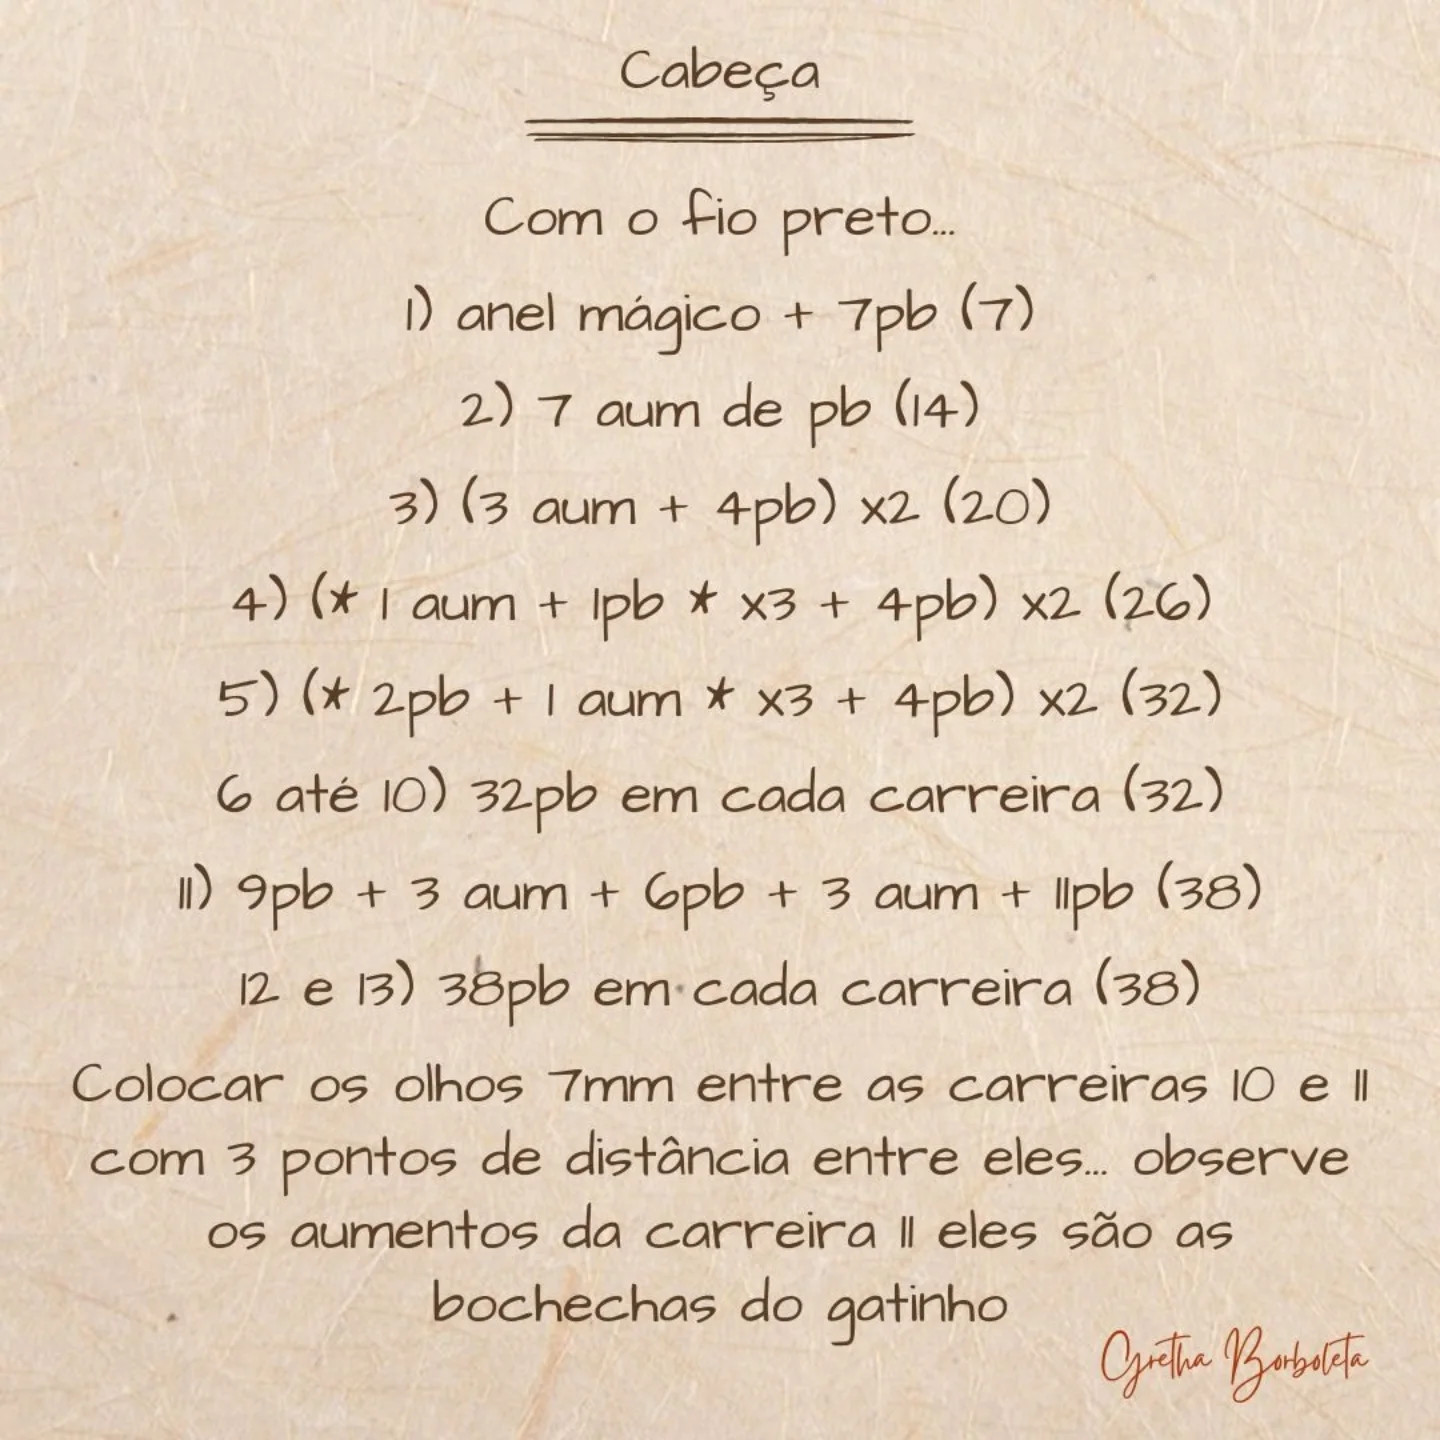 Cabeça
Com o fio preto...
1) anel mágico + 7pb (7)
2) 7 aum de pb (14)
3) (3 aum + 4pb) x2 (20)
4) (* 1 aum + 1pb * x3 + 4pb) x2 (26)
5) (* 2pb + 1 aum * x3 + 4pb) x2 (32)
6 até 10) 32pb em cada carreira (32)
11) 9pb + 3 aum + 6pb + 3 aum + 11pb (38)
12 e 13) 38pb em cada carreira (38)
Colocar os olhos 7mm entre as carreiras 10 e 11
com 3 pontos de distância entre eles... observe
os aumentos da carreira 11 eles são as
bochechas do gatinho
Gretha Borboleta